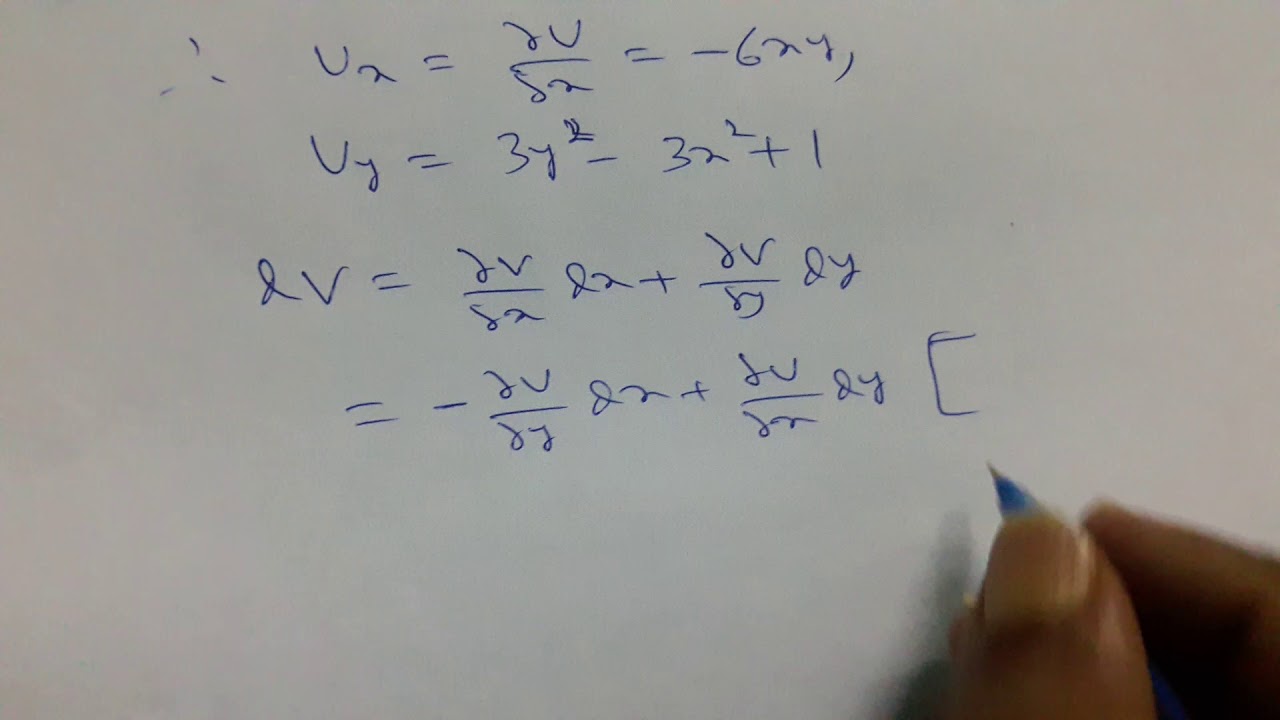 ∴ Ux = ∂U/∂x = -6xy,
Uy = 3y² - 3x² + 1
dV = ∂V/∂x dx + ∂V/∂y dy
= - ∂U/∂y dx + ∂U/∂x dy [